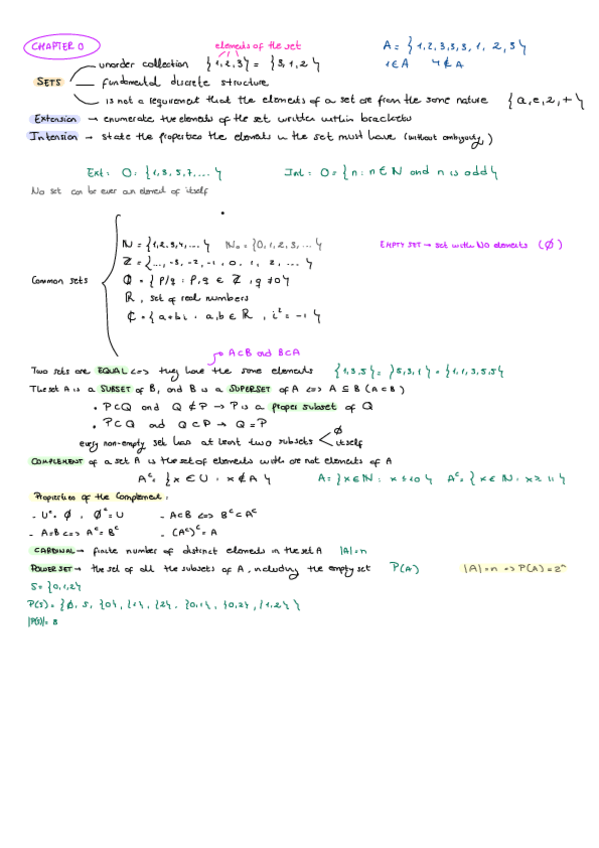 CHAPTER 0
elements of the set
A = {1,2,3,3,3, 1, 2, 3}
unorder collection {1,2,3} = {3,1,2}
1 ∈ A 4 ∉ A
SETS fundamental discrete structure
is not a requirement that the elements of a set are from the same nature {a,e,2,+}
Extension → enumerate the elements of the set written within brackets
Intension → state the properties the elements in the set must have (without ambiguity)
Ext: O: {1,3,5,7,...} Int: O = {n: n ∈ N and n is odd}
No set can be ever an element of itself
N = {1,2,3,4,...} N₀ = {0,1,2,3,...} EMPTY SET → set with NO elements (∅)
Z = {..., -3, -2, -1, 0, 1, 2, ...}
Common sets Q = {p/q : p,q ∈ Z, q ≠ 0}
R, set of real numbers
C = {a+bi : a,b ∈ R, i² = -1}
A⊂B and B⊂A
Two sets are EQUAL <=> they have the same elements {1,3,5} = {5,3,1} = {1,1,3,5,5}
The set A is a SUBSET of B, and B is a SUPERSET of A <=> A ⊆ B (A⊂B)
• P⊂Q and Q⊄P → P is a proper subset of Q
• P⊂Q and Q⊂P → Q = P
every non-empty set has at least two subsets ∅
itself
COMPLEMENT of a set A is the set of elements which are not elements of A
Aᶜ = {x ∈ U : x ∉ A} A = {x ∈ N : x ≤ 10} Aᶜ = {x ∈ N : x ≥ 11}
Properties of the Complement:
- Uᶜ = ∅, ∅ᶜ = U - A⊂B <=> Bᶜ⊂Aᶜ
- A=B <=> Aᶜ = Bᶜ - (Aᶜ)ᶜ = A
CARDINAL → finite number of distinct elements in the set A |A|=n
POWER SET → the set of all the subsets of A, including the empty set P(A) |A|=n => P(A)=2ⁿ
S = {0,1,2}
P(S) = {∅, S, {0}, {1}, {2}, {0,1}, {0,2}, {1,2}}
|P(S)| = 8